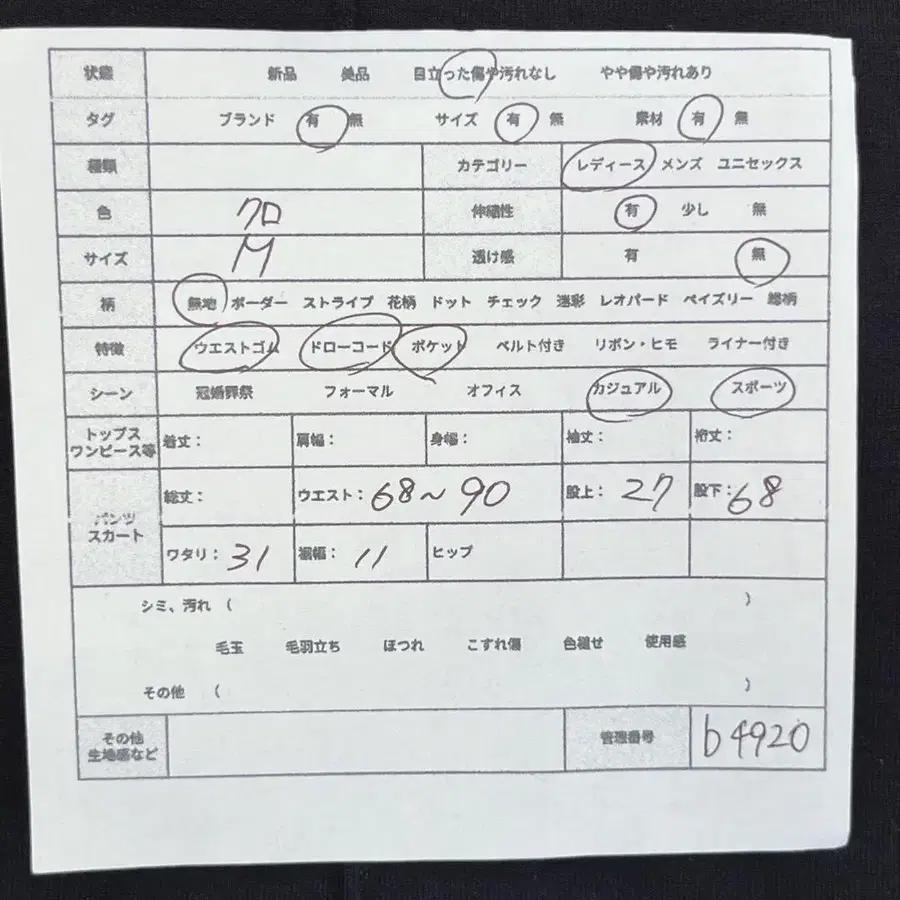 状態 新品 美品 目立った傷や汚れなし やや傷や汚れあり
タグ ブランド 有 無 サイズ 有 無 素材 有 無
種類 カテゴリー レディース メンズ ユニセックス
色 クロ 伸縮性 有 少し 無
サイズ M 透け感 有 無
柄 無地 ボーダー ストライプ 花柄 ドット チェック 迷彩 レオパード ペイズリー 総柄
特徴 ウエストゴム ドローコード ポケット ベルト付き リボン・ヒモ ライナー付き
シーン 冠婚葬祭 フォーマル オフィス カジュアル スポーツ
トップス
ワンピース等 着丈: 肩幅: 身幅: 袖丈: 裄丈:
パンツ
スカート
総丈: ウエスト: 68~90 股上: 27 股下: 68
ワタリ: 31 裾幅: 11 ヒップ
シミ、汚れ ( )
毛玉 毛羽立ち ほつれ こすれ傷 色褪せ 使用感
その他 ( )
その他
生地感など 管理番号 b4920